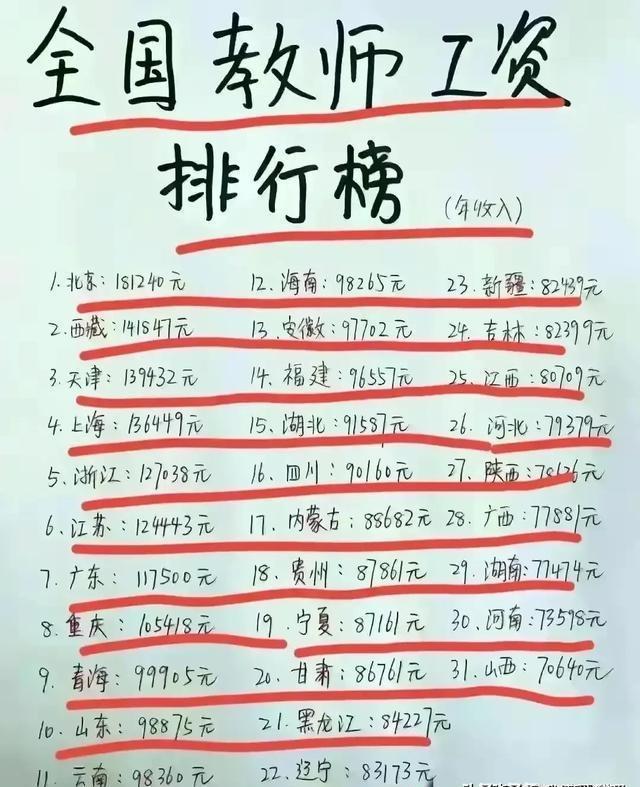 全国教师工资
排行榜 (年收入)
1. 北京: 181240元
2. 西藏: 141847元
3. 天津: 139432元
4. 上海: 136449元
5. 浙江: 127038元
6. 江苏: 124443元
7. 广东: 117500元
8. 重庆: 105418元
9. 青海: 99905元
10. 山东: 98875元
11. 云南: 98360元
12. 海南: 98265元
13. 安徽: 97702元
14. 福建: 96557元
15. 湖北: 91587元
16. 四川: 90160元
17. 内蒙古: 88682元
18. 贵州: 87861元
19. 宁夏: 87161元
20. 甘肃: 86761元
21. 黑龙江: 84227元
22. 辽宁: 83173元
23. 新疆: 82439元
24. 吉林: 82399元
25. 江西: 80709元
26. 河北: 79379元
27. 陕西: 78126元
28. 广西: 77881元
29. 湖南: 77474元
30. 河南: 73598元
31. 山西: 70640元